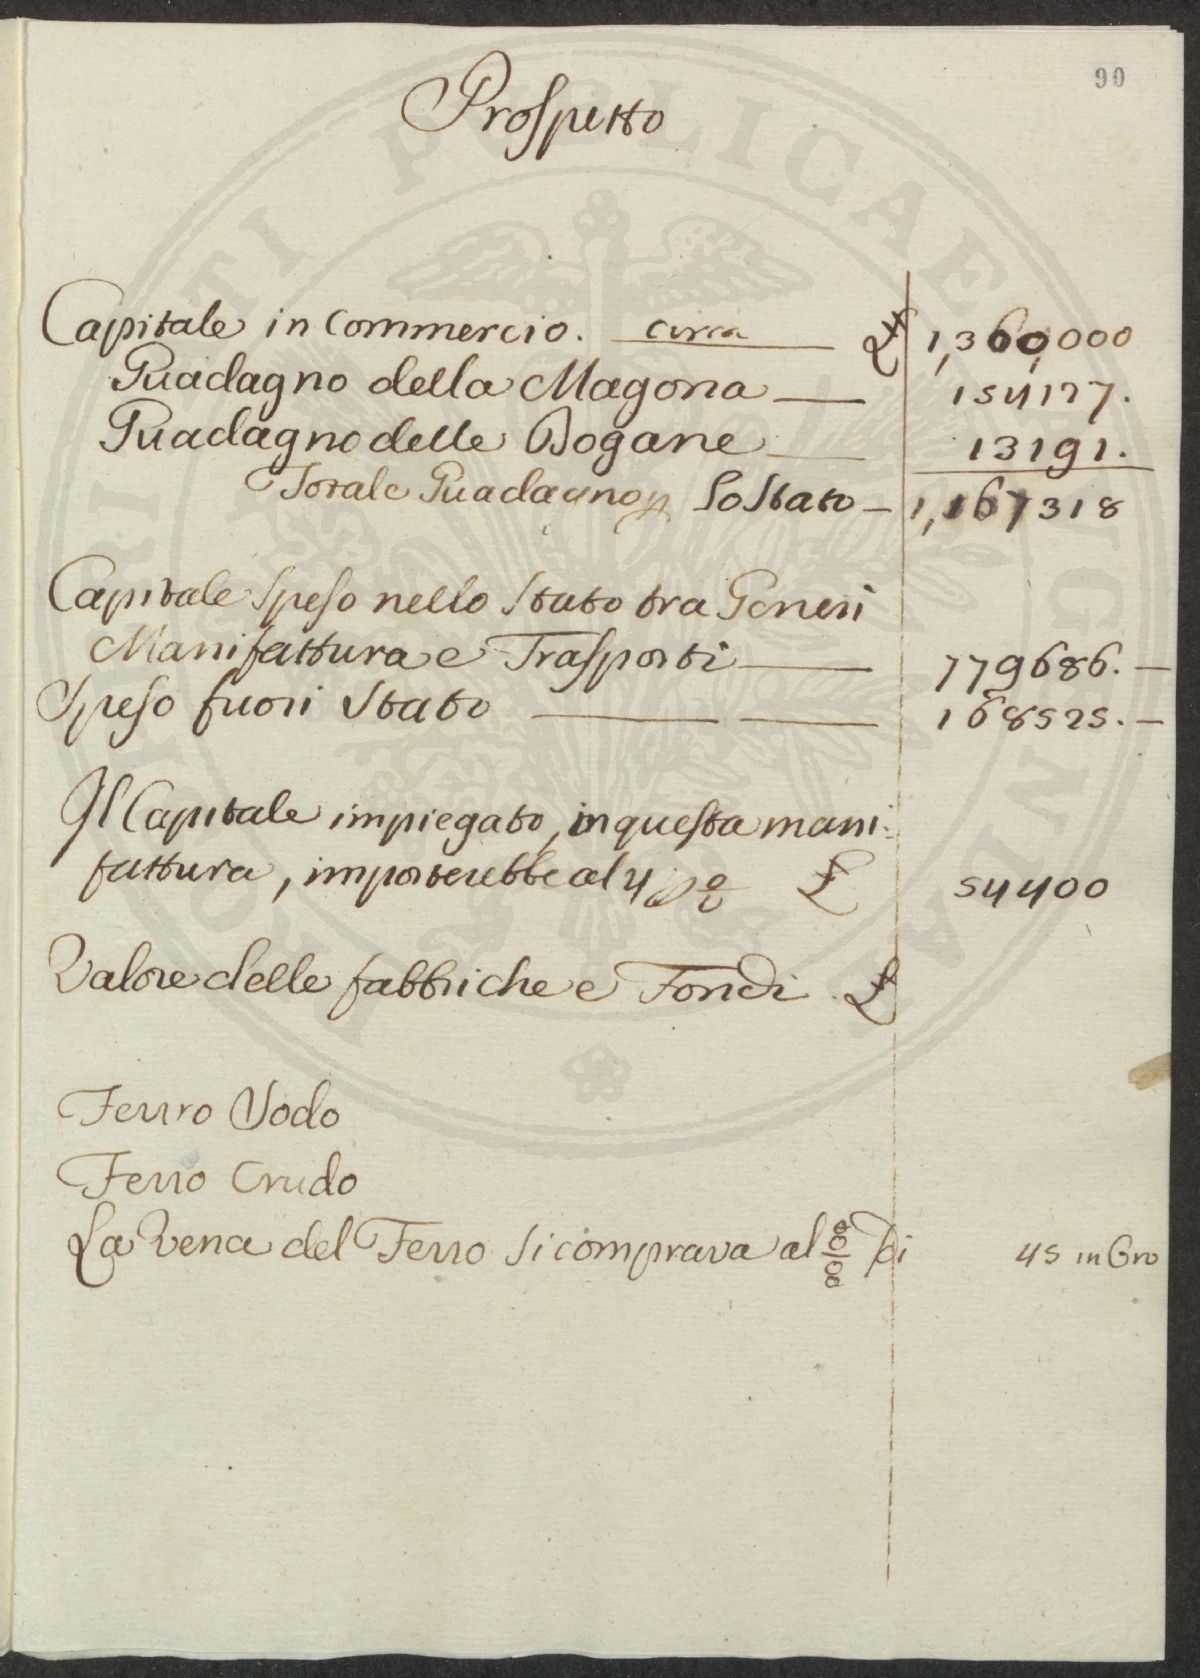 90
Prospetto
Capitale in Commercio. circa £ 1,360,000
Guadagno della Magona 154127.
Guadagno delle Dogane 13191.
Totale Guadagno p Lo Stato 1,167318
Capitale Speso nello Stato tra Generi
Manifattura e Trasporti 779686.
Speso fuori Stato 168525.
Il Capitale impiegato, in questa mani
fattura, importerebbe al 4 p % £ 54400
Valore delle fabbriche e Fondi. £
Ferro Sodo
Ferro Crudo
La Vena del Ferro si comprava al di 45 in